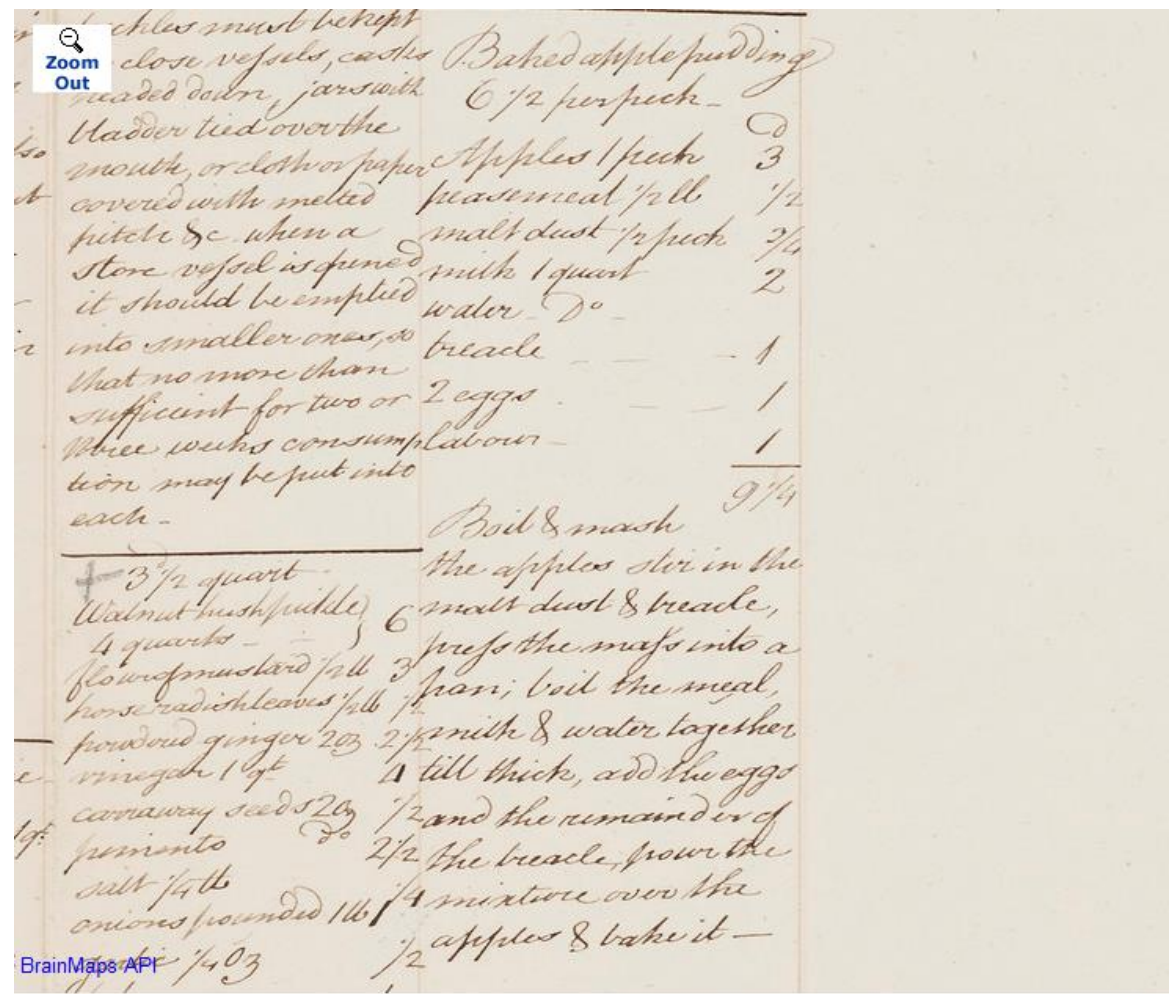 Zoom
Out
pickles must be kept
close vessels, casks
headed down, jars with
bladder tied over the
mouth, or cloth or paper
covered with melted
pitch &c when a
store vessel is opened
it should be emptied
into smaller ones, so
that no more than
sufficient for two or
three weeks consump
tion may be put into
each -
3 1/2 quart
Walnut husk pickle }
4 quarts - 6
flour of mustard 1/2 lb 3
horseradish leaves 1/2 lb 1/2
powderd ginger 2 oz 2 1/2
vinegar 1 qt 4
carraway seeds 2 oz 1/2
pimento Do 2 1/2
salt 1/4 lb 1/4
onions pounded 1 lb 1
garlic 1/4 Oz 1/2
Baked apple pudding
6 1/2 per peck -
D
Apples 1 peck 3
peasemeal 1/2 lb 1/2
malt dust 1/2 peck 3/4
milk 1 quart 2
water - Do -
treacle - - - 1
2 eggs - - - 1
labour - 1
9 1/4
Boil & mash
the apples stir in the
malt dust & treacle,
press the mass into a
pan; boil the meal,
milk & water together
till thick, add the eggs
and the remainder of
the treacle, pour the
mixture over the
apples & bake it —
BrainMaps API